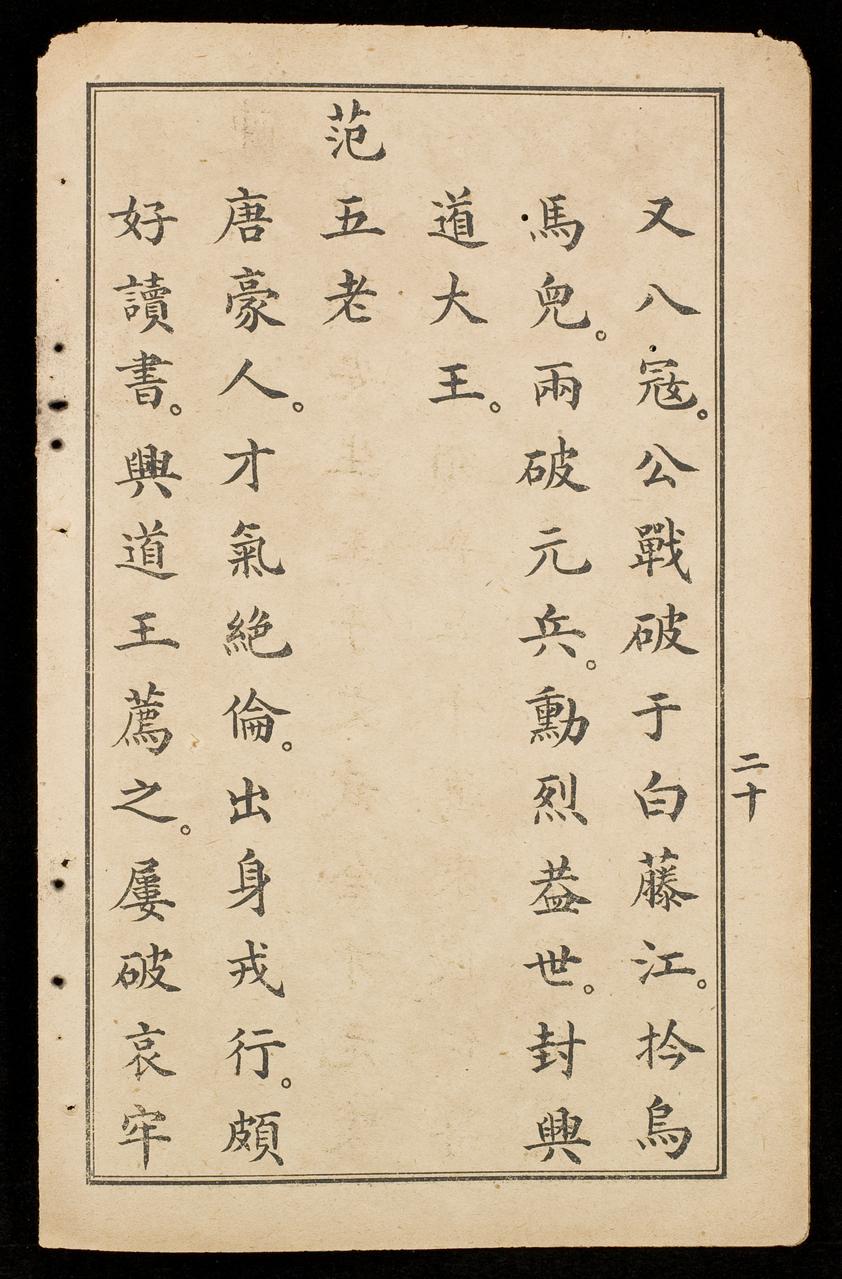 又八冦。公戰破于白藤江。扲烏
馬兒。兩破元兵。勳烈葢世。封興
道大王。
范五老
唐豪人。才氣絕倫。出身戎行。頗
好讀書。興道王薦之。屢破哀牢
二十